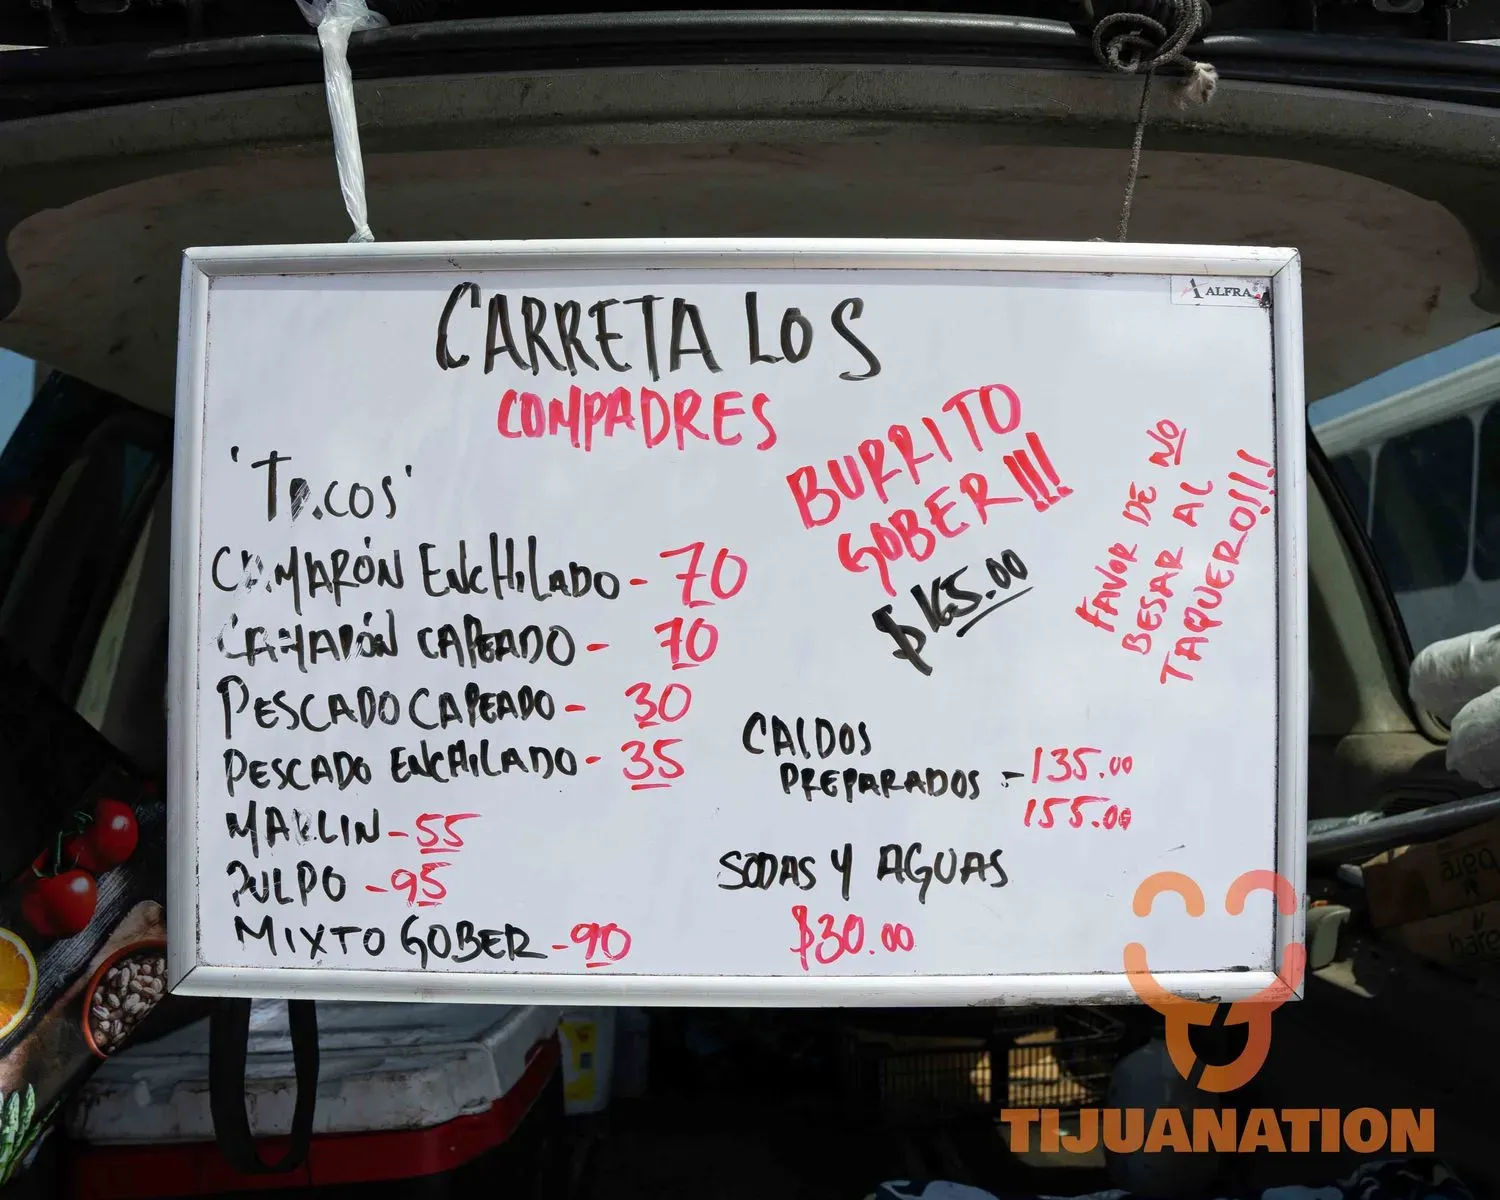 ALFRA
CARRETA LOS
COMPADRES
'TACOS'
CAMARÓN ENCHILADO - 70
CAMARÓN CAPEADO - 70
PESCADO CAPEADO - 30
PESCADO ENCHILADO - 35
MARLIN - 55
PULPO - 95
MIXTO GOBER - 90
BURRITO
GOBER!!!
$165.00
FAVOR DE NO
BESAR AL
TAQUERO!!!
CALDOS
PREPARADOS - 135.00
155.00
SODAS Y AGUAS
$30.00
TIJUANATION